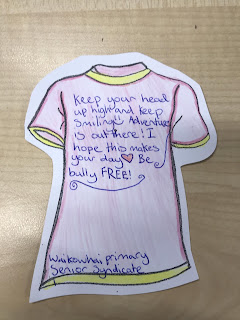 Keep your head
up high and keep
Smiling! Adventure
is out there! I
hope this makes
your day ♥ Be
bully FREE!
Waikowhai primary
Senior Syndicate